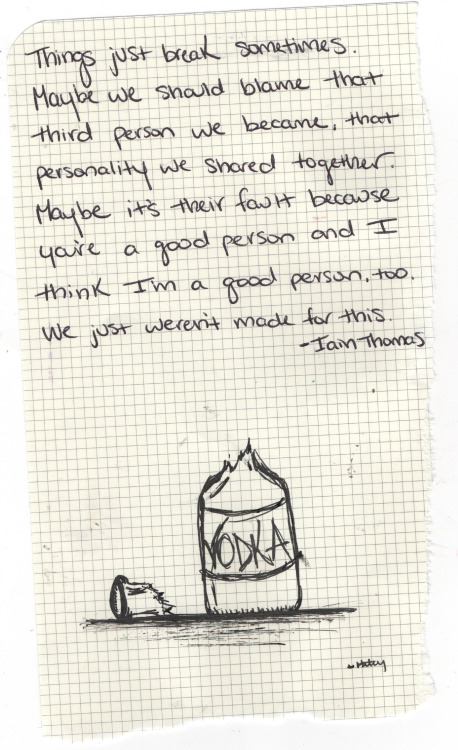 Things just break sometimes.
Maybe we should blame that
third person we became, that
personality we shared together.
Maybe it's their fault because
you're a good person and I
think I'm a good person, too.
We just weren't made for this.
-Iain Thomas
VODKA